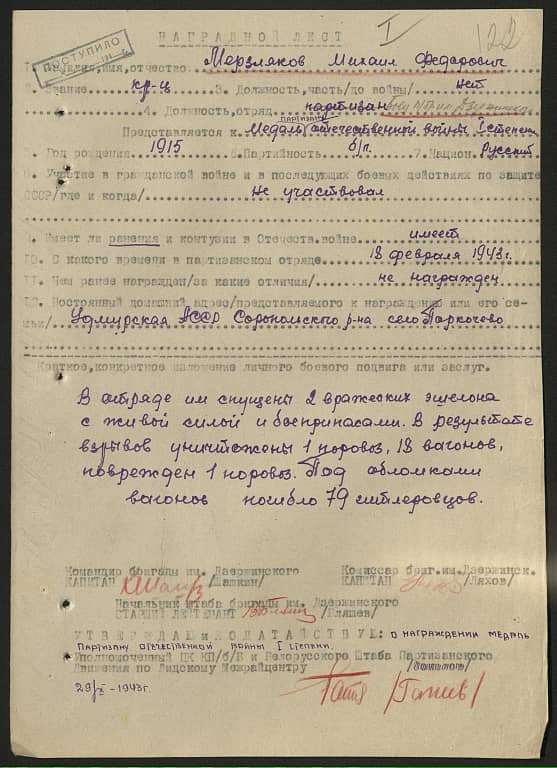 I 122
НАГРАДНОЙ ЛИСТ
ПОСТУПИЛО
Фамилия, имя, отчество Мерзляков Михаил Федорович
Звание кр-ц 3. Должность, часть/до войны/ нет
4. Должность, отряд партизан
Представляется к Медаль партизану отечественной войны I степени
Год рождения 1915 6. Партийность б/п. 7. Национ. Русский
Участие в гражданской войне и в последующих боевых действиях по защите
СССР/где и когда/ Не участвовал
9. Имеет ли ранения и контузии в Отечеств.войне имеет
10. С какого времени в партизанском отряде 18 февраля 1943г.
11. Чем ранее награжден/за какие отличия/ не награжден
12. Постоянный домашний адрес/представляемого к награждению или его се-
мьи/ Удмурская АССР р-на село
Краткое,конкретное изложение личного боевого подвига или заслуг.
В отряде им спущены 2 вражеских эшелона
с живой силой и боеприпасами. В результате
взрывов уничтожены 1 поровоз, 18 вагонов,
поврежден 1 поровоз. Под обломками
вагонов погибло 79 гитлеровцов.
Командир бригады им. Дзержинского Комиссар бриг.им.Дзержинск.
КАПИТАН /Шашкин/ КАПИТАН /Ляхов/
Начальник штаба бригады им. Дзержинского
СТАРШИЙ ЛЕЙТЕНАНТ /Гляшев/
УТВЕРЖДАЮ и ХОДАТАЙСТВУЮ: о награждении медаль
партизану отечественной войны I степени.
Уполномоченный ЦК КП/б/Б и Белорусского Штаба Партизанского
Движения по Лидскому Межрайцентру
29/X - 1943г.